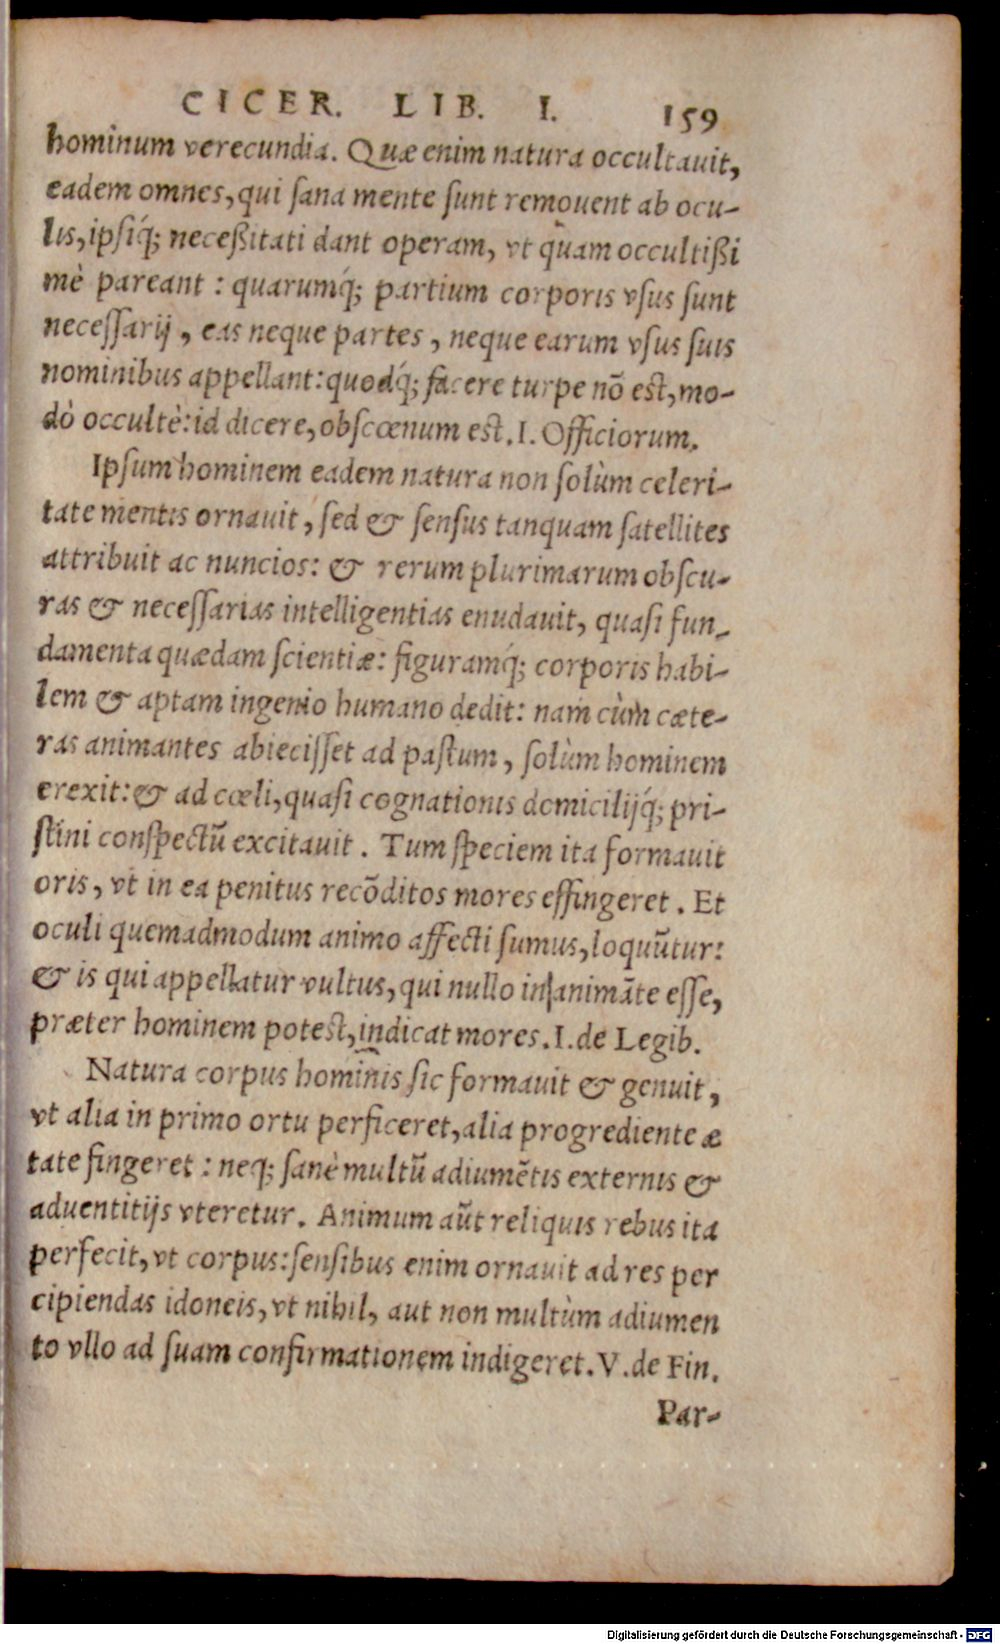 CICER. LIB. I. 159
hominum verecundia. Quæ enim natura occultauit,
eadem omnes, qui sana mente sunt remouent ab ocu-
lis, ipsiq́; neceßitati dant operam, vt quam occultißi
mè pareant : quarumq́; partium corporis vsus sunt
necessarij , eas neque partes , neque earum vsus suis
nominibus appellant: quodq́; facere turpe nõ est, mo-
dò occultè: id dicere, obscœnum est. I. Officiorum.
Ipsum hominem eadem natura non solùm celeri-
tate mentis ornauit, sed & sensus tanquam satellites
attribuit ac nuncios: & rerum plurimarum obscu-
ras & necessarias intelligentias enudauit, quasi fun-
damenta quædam scientiæ: figuramq́; corporis habi-
lem & aptam ingenio humano dedit: nam cùm cæte-
ras animantes abiecisset ad pastum, solùm hominem
erexit: & ad cœli, quasi cognationis domicilijq́; pri-
stini conspectũ excitauit . Tum speciem ita formauit
oris, vt in ea penitus recõditos mores effingeret . Et
oculi quemadmodum animo affecti sumus, loquũtur:
& is qui appellatur vultus, qui nullo in animãte esse,
præter hominem potest, indicat mores. I. de Legib.
Natura corpus hominis sic formauit & genuit,
vt alia in primo ortu perficeret, alia progrediente æ
tate fingeret : neq; sanè multũ adiumẽtis externis &
aduentitijs vteretur. Animum aũt reliquis rebus ita
perfecit, vt corpus: sensibus enim ornauit ad res per
cipiendas idoneis, vt nihil, aut non multùm adiumen
to vllo ad suam confirmationem indigeret. V. de Fin.
Par-
Digitalisierung gefördert durch die Deutsche Forschungsgemeinschaft - DFG